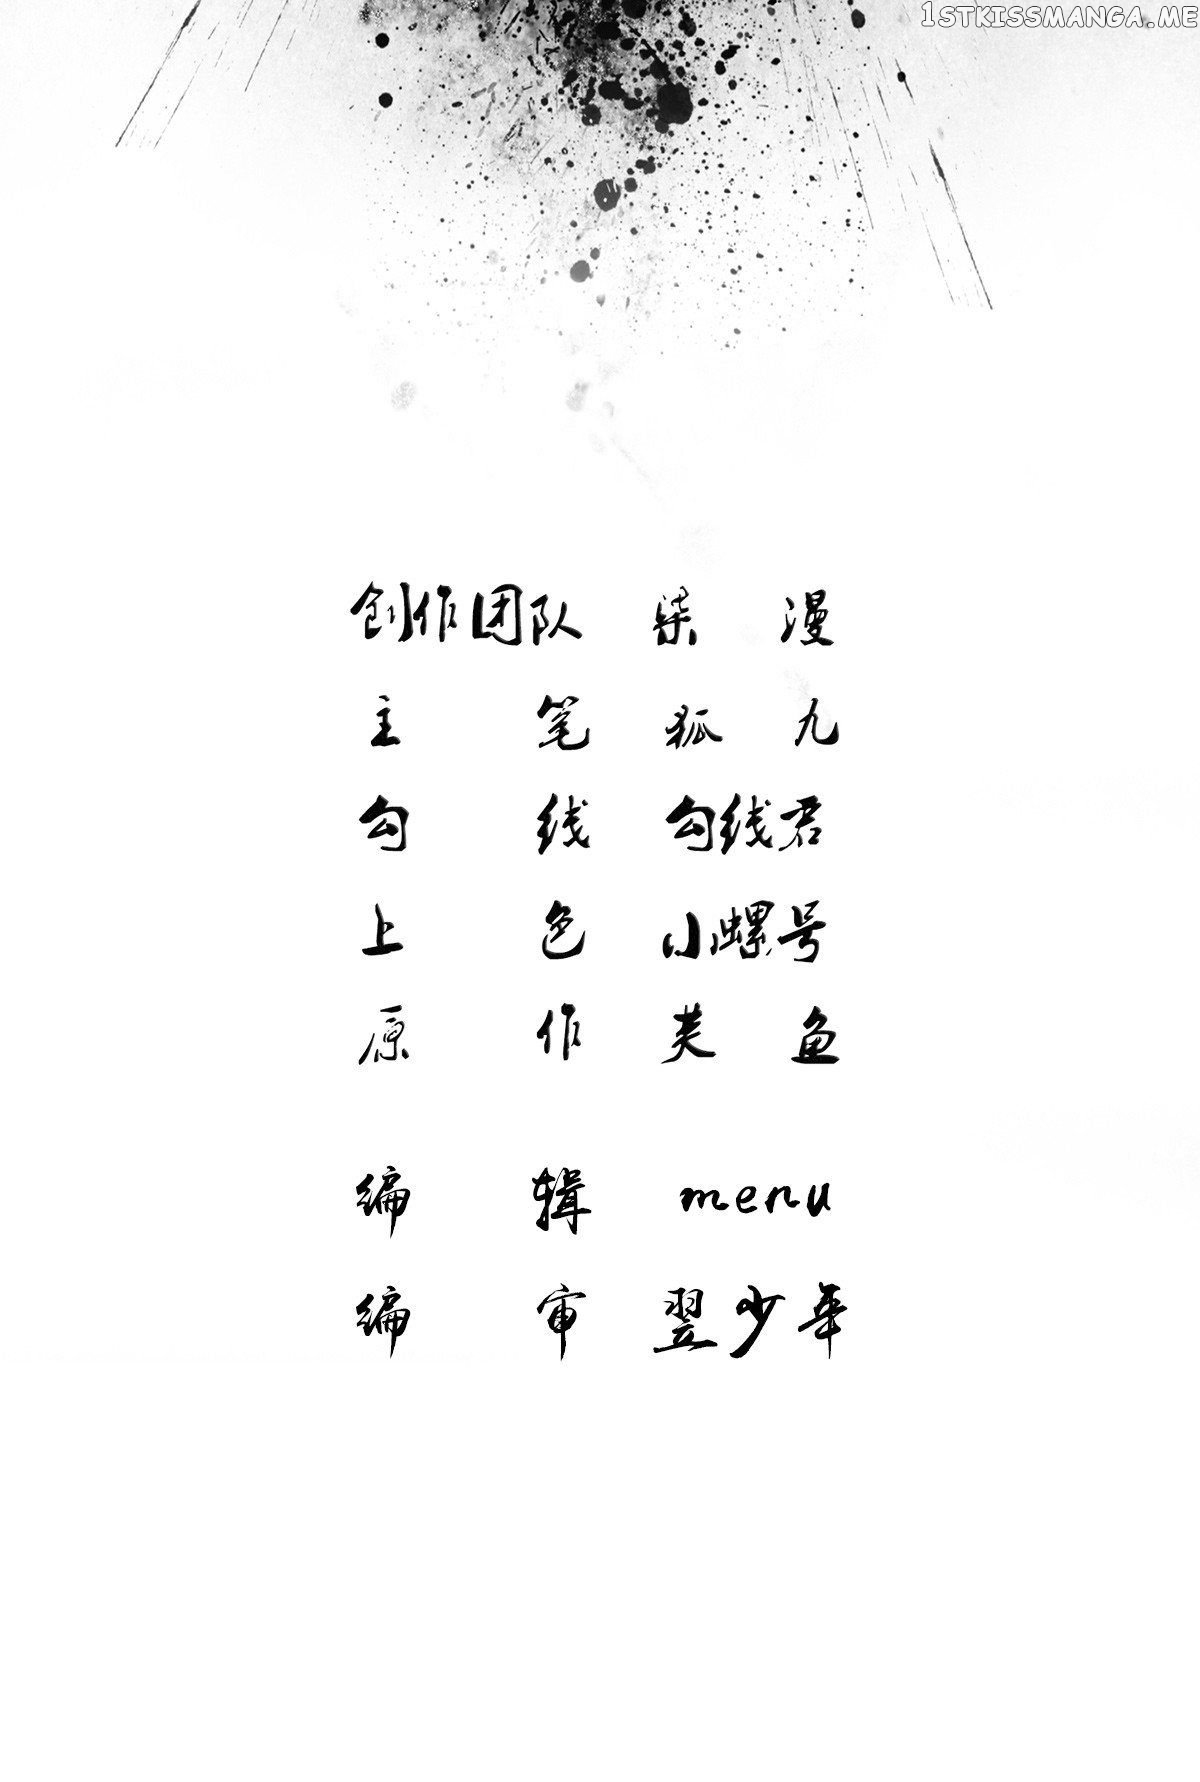 1STKISSMANGA.ME
创作团队 柒漫
主笔 狐九
勾线 勾线君
上色 小螺号
原作 芙鱼
编辑 menu
编审 翌少年